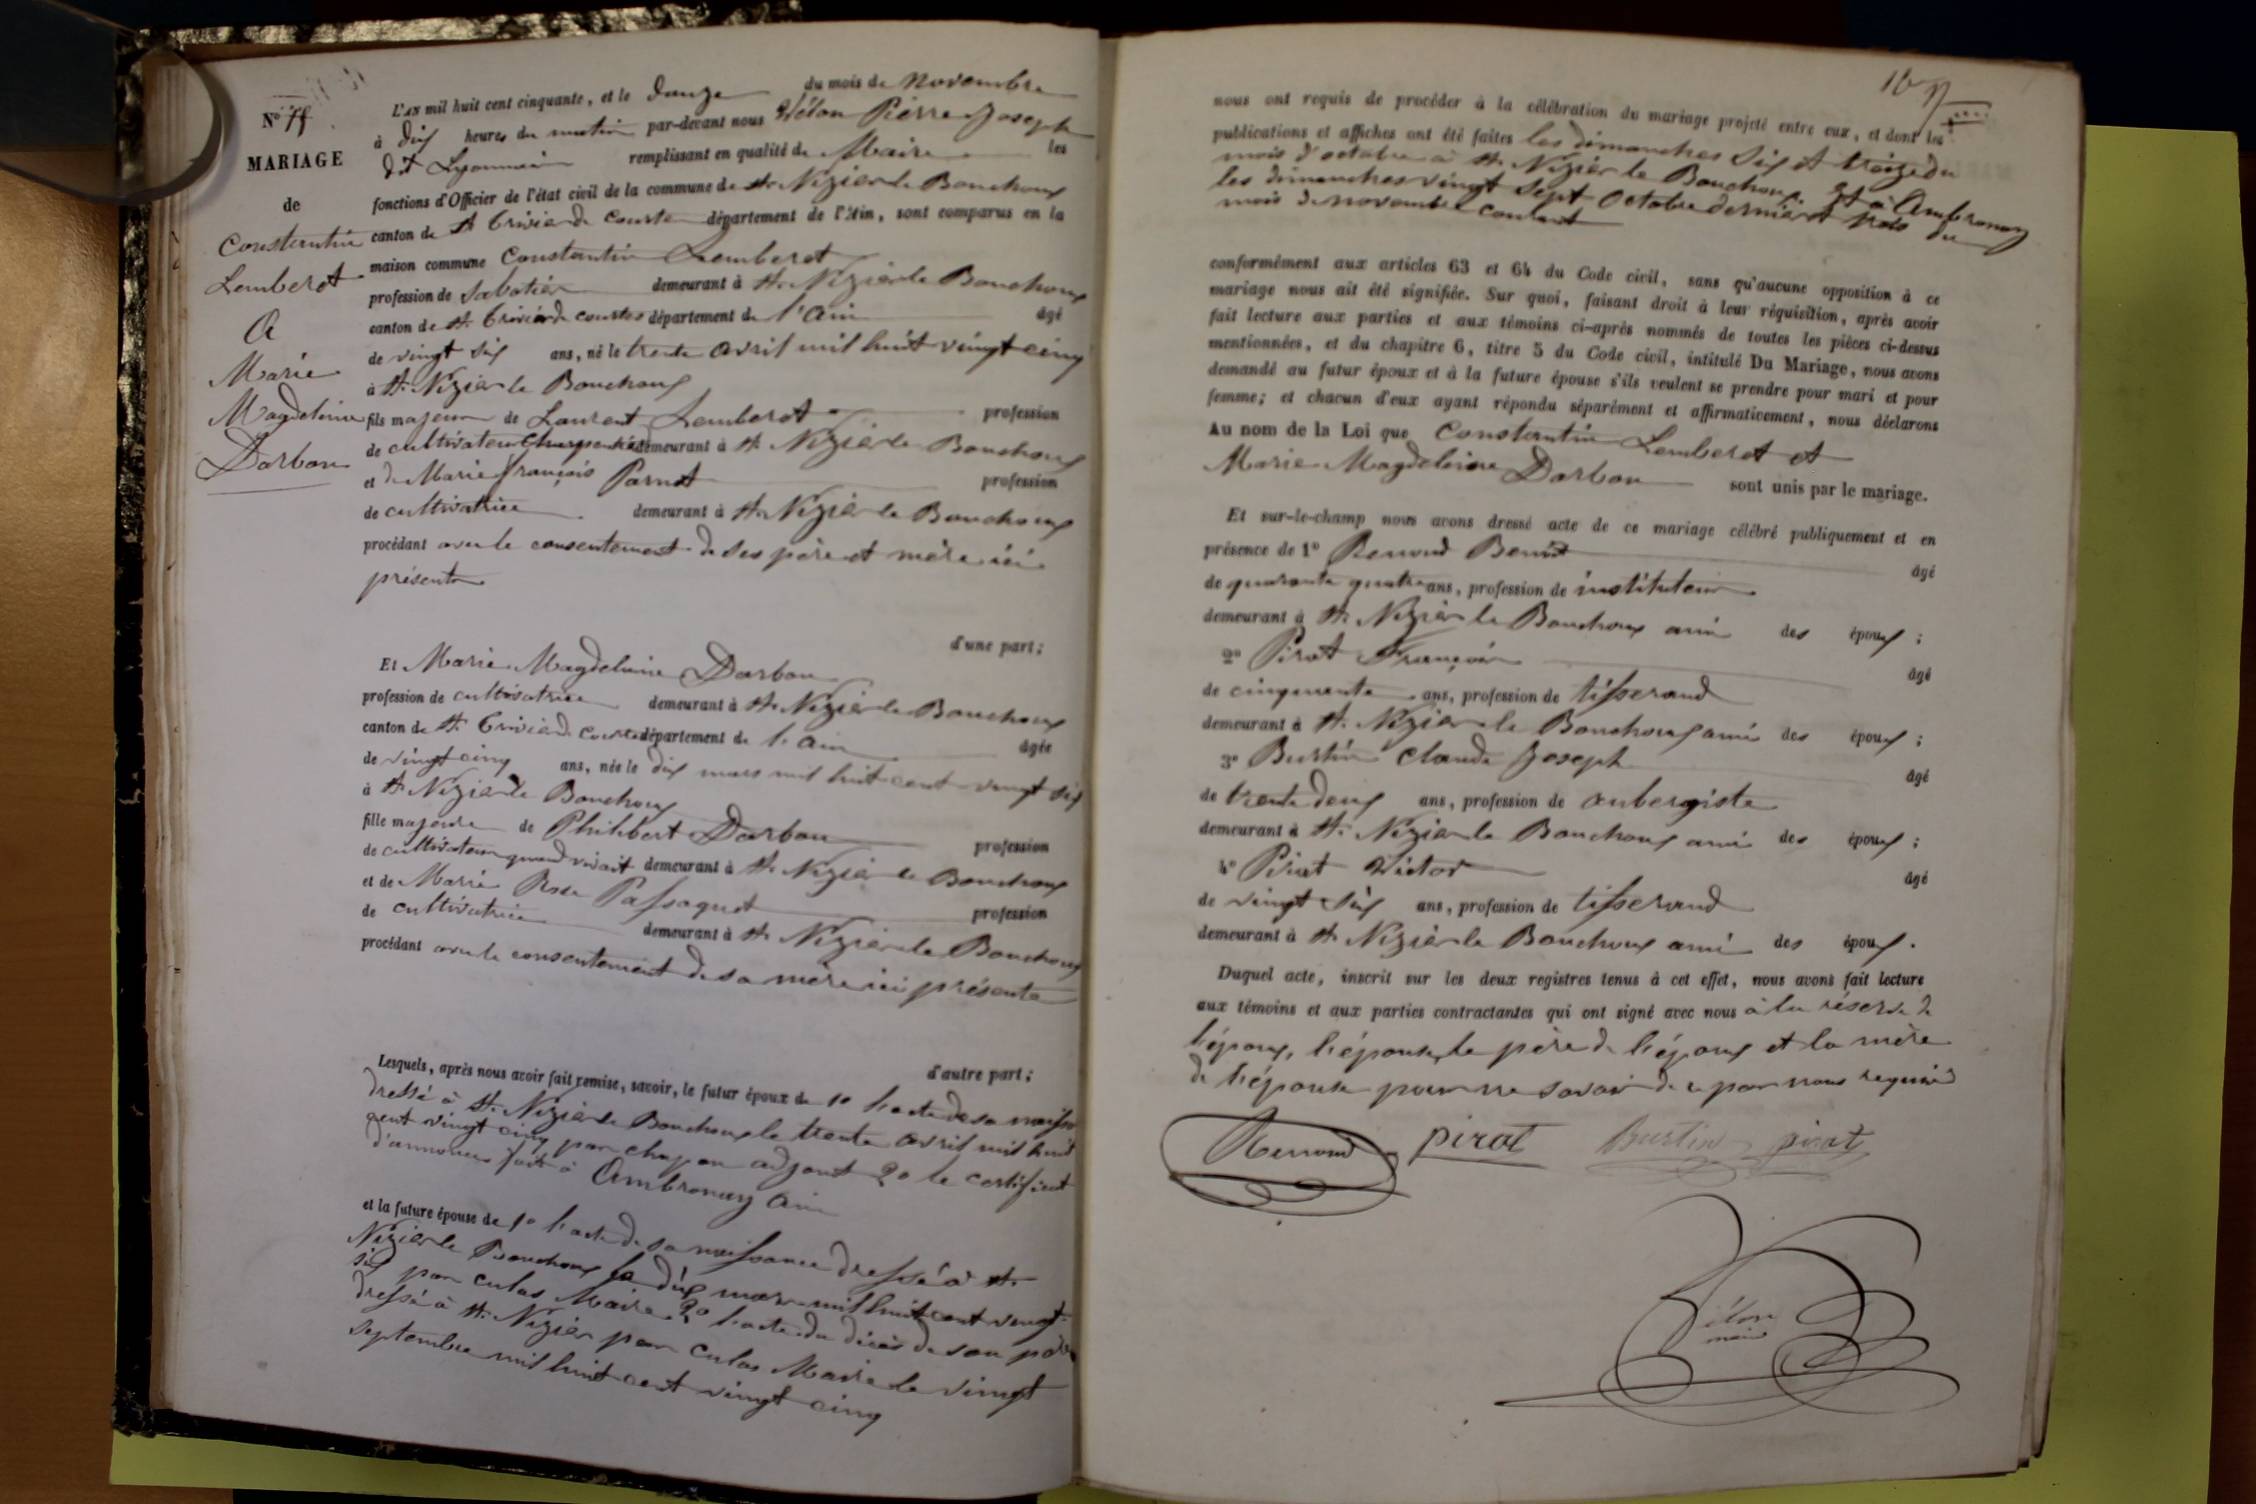 MARIAGE
de
Constantin
Lemberot
A
Marie
Magdeleine
Darbon
L'AN mil huit cent cinquante, et le douze du mois de Novembre
à dix heures du matin par-devant nous Vélon Pierre Joseph
dit Lyonnais remplissant en qualité de Maire les
fonctions d'Officier de l'état civil de la commune de St Nizier le Bouchoux
canton de St Trivier de Courtes département de l'Ain, sont comparus en la
maison commune Constantin Lemberot
profession de Sabotier demeurant à St Nizier le Bouchoux
canton de St Trivier de courtes département de l'Ain âgé
de vingt six ans, né le trente avril mil huit vingt cinq
à St Nizier le Bouchoux
fils majeur de Laurent Lemberot profession
de cultivateur demeurant à St Nizier le Bouchoux
et de Marie françois Parnot profession
de cultivatrice demeurant à St Nizier le Bouchoux
procédant avec le consentement de ses père et mère ici
présents
d'une part;
Et Marie Magdeleine Darbon
profession de cultivatrice demeurant à St Nizier le Bouchoux
canton de St Trivier de Courtes département de l'ain âgée
de vingt cinq ans, née le dix mars mil huit cent vingt six
à St Nizier le Bouchoux
fille majeure de Philibert Darbon profession
de cultivateur quand vivait demeurant à St Nizier le Bouchoux
et de Marie Rose Passaquet profession
de cultivatrice demeurant à St Nizier le Bouchoux
procédant avec le consentement de sa mère ici présente
d'autre part;
Lesquels, après nous avoir fait remise, savoir, le futur époux de 1° l'acte de sa naiss
dressé à St Nizier le Bouchoux le trente avril mil huit
cent vingt cinq par chapon adjoint 2° le certificat
d'annonces faite à Ambronay Ain
et la future épouse de 1° l'acte de sa naissance dressé à St
Nizier le Bouchoux le dix mars mil huit cent vingt
six par culas Maire 2° l'acte du décès de son père
dressé à St Nizier par culas Maire le vingt
septembre mil huit cent vingt cinq
nous ont requis de procéder à la célébration du mariage projeté entre eux, et dont les
publications et affiches ont été faites les dimanches Six et treize du
mois d'octobre à St Nizier le Bouchoux et à Ambronay
les dimanches vingt sept Octobre dernier et trois du
mois de novembre courant
conformément aux articles 63 et 64 du Code civil, sans qu'aucune opposition à ce
mariage nous ait été signifiée. Sur quoi, faisant droit à leur réquisition, après avoir
fait lecture aux parties et aux témoins ci-après nommés de toutes les pièces ci-dessus
mentionnées, et du chapitre 6, titre 5 du Code civil, intitulé Du Mariage, nous avons
demandé au futur époux et à la future épouse s'ils veulent se prendre pour mari et pour
femme; et chacun d'eux ayant répondu séparément et affirmativement, nous déclarons
Au nom de la Loi que Constantin Lemberot et
Marie Magdeleine Darbon sont unis par le mariage.
Et sur-le-champ nous avons dressé acte de ce mariage célébré publiquement et en
présence de 1° Renoud Benoit âgé
de quarante quatre ans, profession de instituteur
demeurant à St Nizier le Bouchoux ami des époux ;
2° Pirat François âgé
de cinquante ans, profession de tisserand
demeurant à St Nizier le Bouchoux ami des époux ;
3° Burtin Claude Joseph âgé
de trente deux ans, profession de aubergiste
demeurant à St Nizier le Bouchoux ami des époux ;
4° Pirat Victor âgé
de vingt six ans, profession de tisserand
demeurant à St Nizier le Bouchoux ami des époux.
Duquel acte, inscrit sur les deux registres tenus à cet effet, nous avons fait lecture
aux témoins et aux parties contractantes qui ont signé avec nous à la réserve de
l'époux, l'épouse, le père de l'époux et la mère
de l'épouse pour ne savoir de ce par nous requis
Renoud pirat Burtin pirat
Vélon
maire